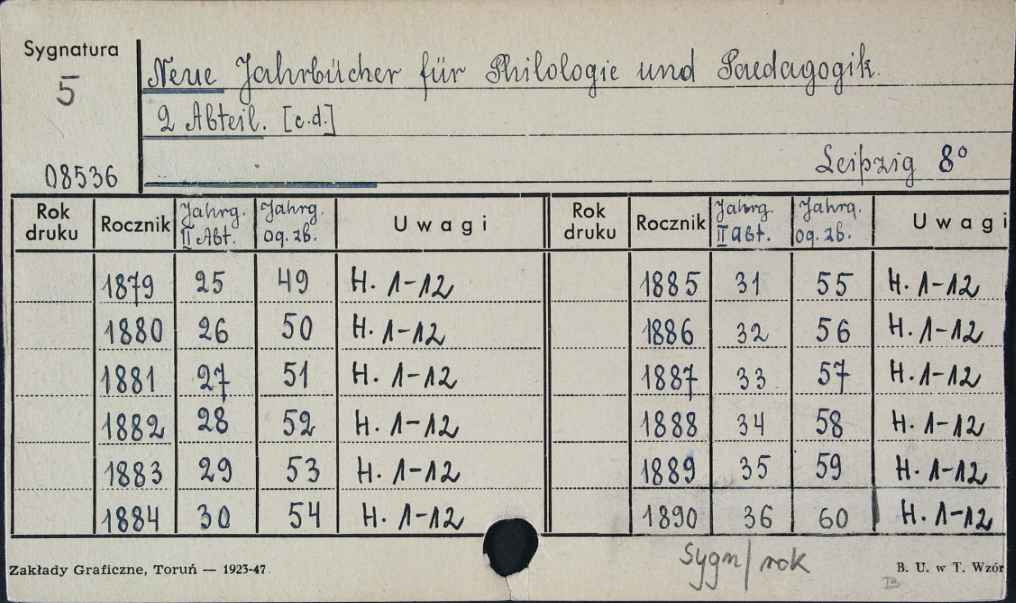 Sygnatura
5
08536
Neue Jahrbücher für Philologie und Paedagogik.
2 Abteil. [c.d.]
Leipzig 8°
Rok druku Rocznik Jahrg. II Abt. Jahrg. og. zb. Uwagi Rok druku Rocznik Jahrg. II Abt. Jahrg. og. zb. Uwagi
1879 25 49 H. 1-12 1885 31 55 H. 1-12
1880 26 50 H. 1-12 1886 32 56 H. 1-12
1881 27 51 H. 1-12 1887 33 57 H. 1-12
1882 28 52 H. 1-12 1888 34 58 H. 1-12
1883 29 53 H. 1-12 1889 35 59 H. 1-12
1884 30 54 H. 1-12 1890 36 60 H. 1-12
Sygn/rok
Zakłady Graficzne, Toruń — 1923-47 B. U. w T. Wzór